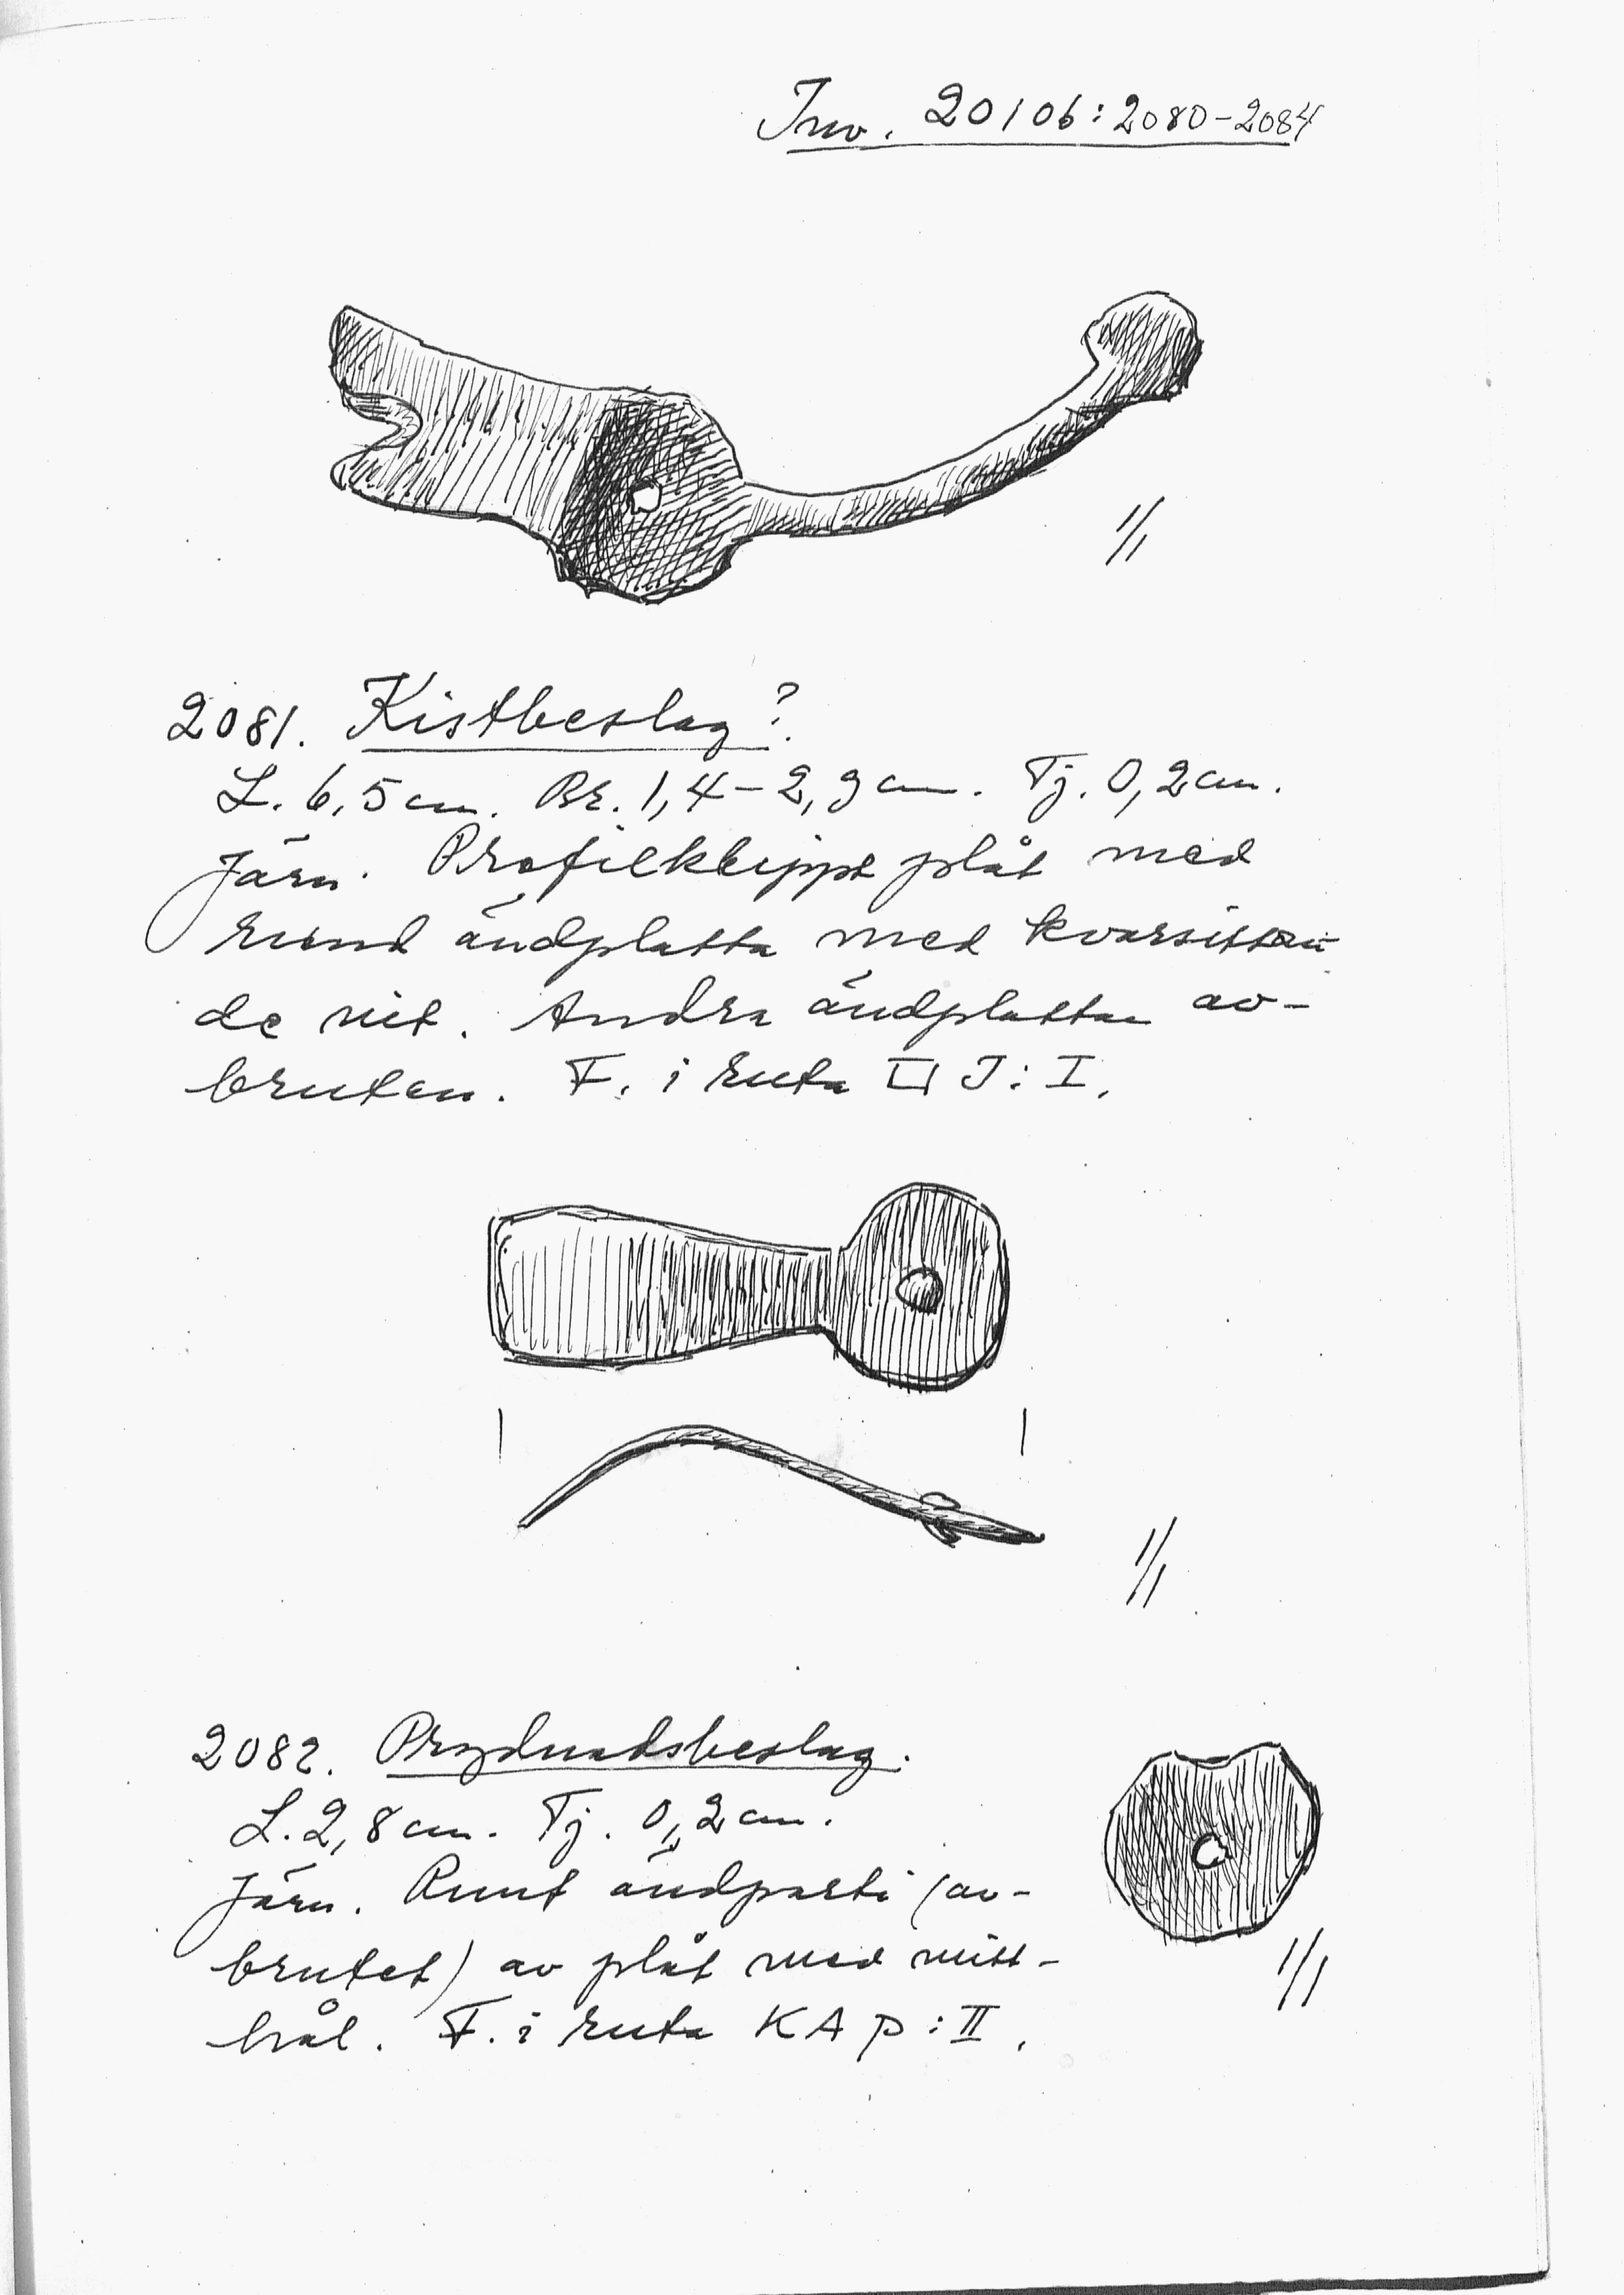 Inv. 20106:2080-2084
1/1
2081. Kistbeslag?
L. 6,5 cm. Br. 1,4-2,9 cm. Tj. 0,2 cm.
Järn. Profilklippt plåt med
rund ändplatta med kvarsittan
de nit. Andra ändplattan av-
bruten. F. i ruta J: I.
1/1
2082. Prydnadsbeslag.
L. 2,8 cm. Tj. 0,2 cm.
Järn. Runt ändparti (av-
brutet) av plåt med mitt-
hål. F. i ruta KAP: II.
1/1